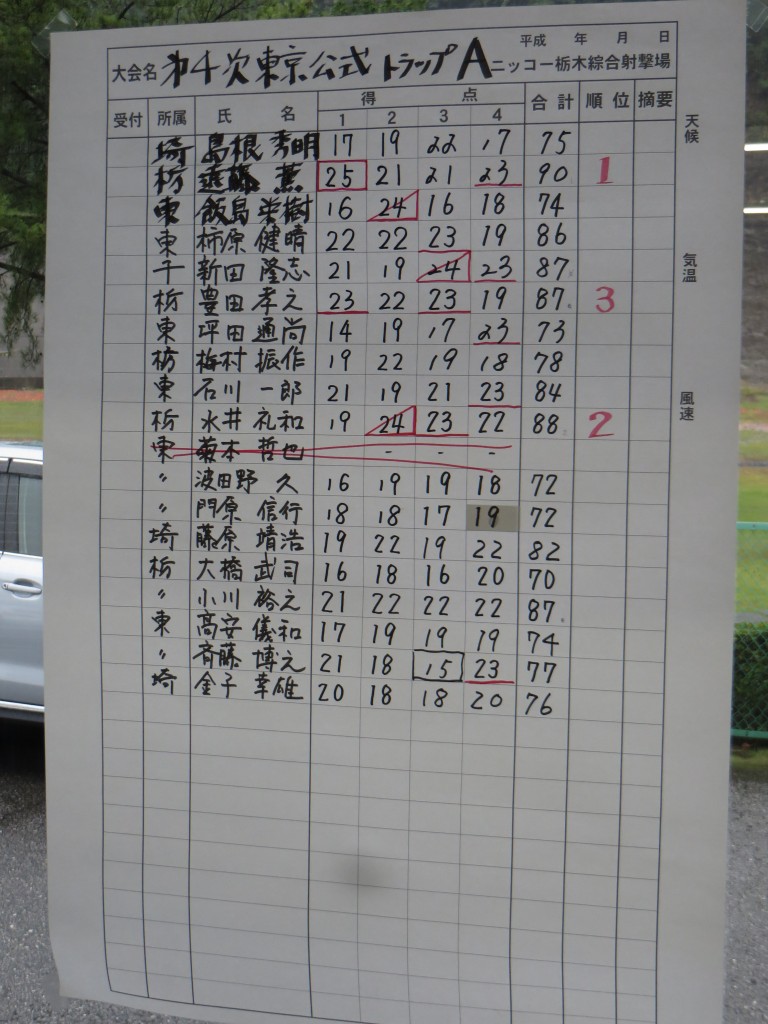 平成 年 月 日
大会名 第4次東京公式 トラップ A ニッコー栃木綜合射撃場
受付 所属 氏 名 得 点 合計 順位 摘要
1 2 3 4
天候
気温
風速
埼 島根 秀明 17 19 22 17 75
栃 遠藤 薫 25 21 21 23 90 1
東 飯島 栄樹 16 24 16 18 74
東 柿原 健晴 22 22 23 19 86
千 新田 隆志 21 19 24 23 87
栃 豊田 孝之 23 22 23 19 87 3
東 坪田 通尚 14 19 17 23 73
栃 梅村 振作 19 22 19 18 78
東 石川 一郎 21 19 21 23 84
栃 永井 礼和 19 24 23 22 88 2
東 菊本 哲也 - - -
〃 波田野 久 16 19 19 18 72
〃 門原 信行 18 18 17 19 72
埼 藤原 靖浩 19 22 19 22 82
栃 大橋 武司 16 18 16 20 70
〃 小川 裕之 21 22 22 22 87
東 高安 儀和 17 19 19 19 74
〃 斉藤 博之 21 18 15 23 77
埼 金子 幸雄 20 18 18 20 76